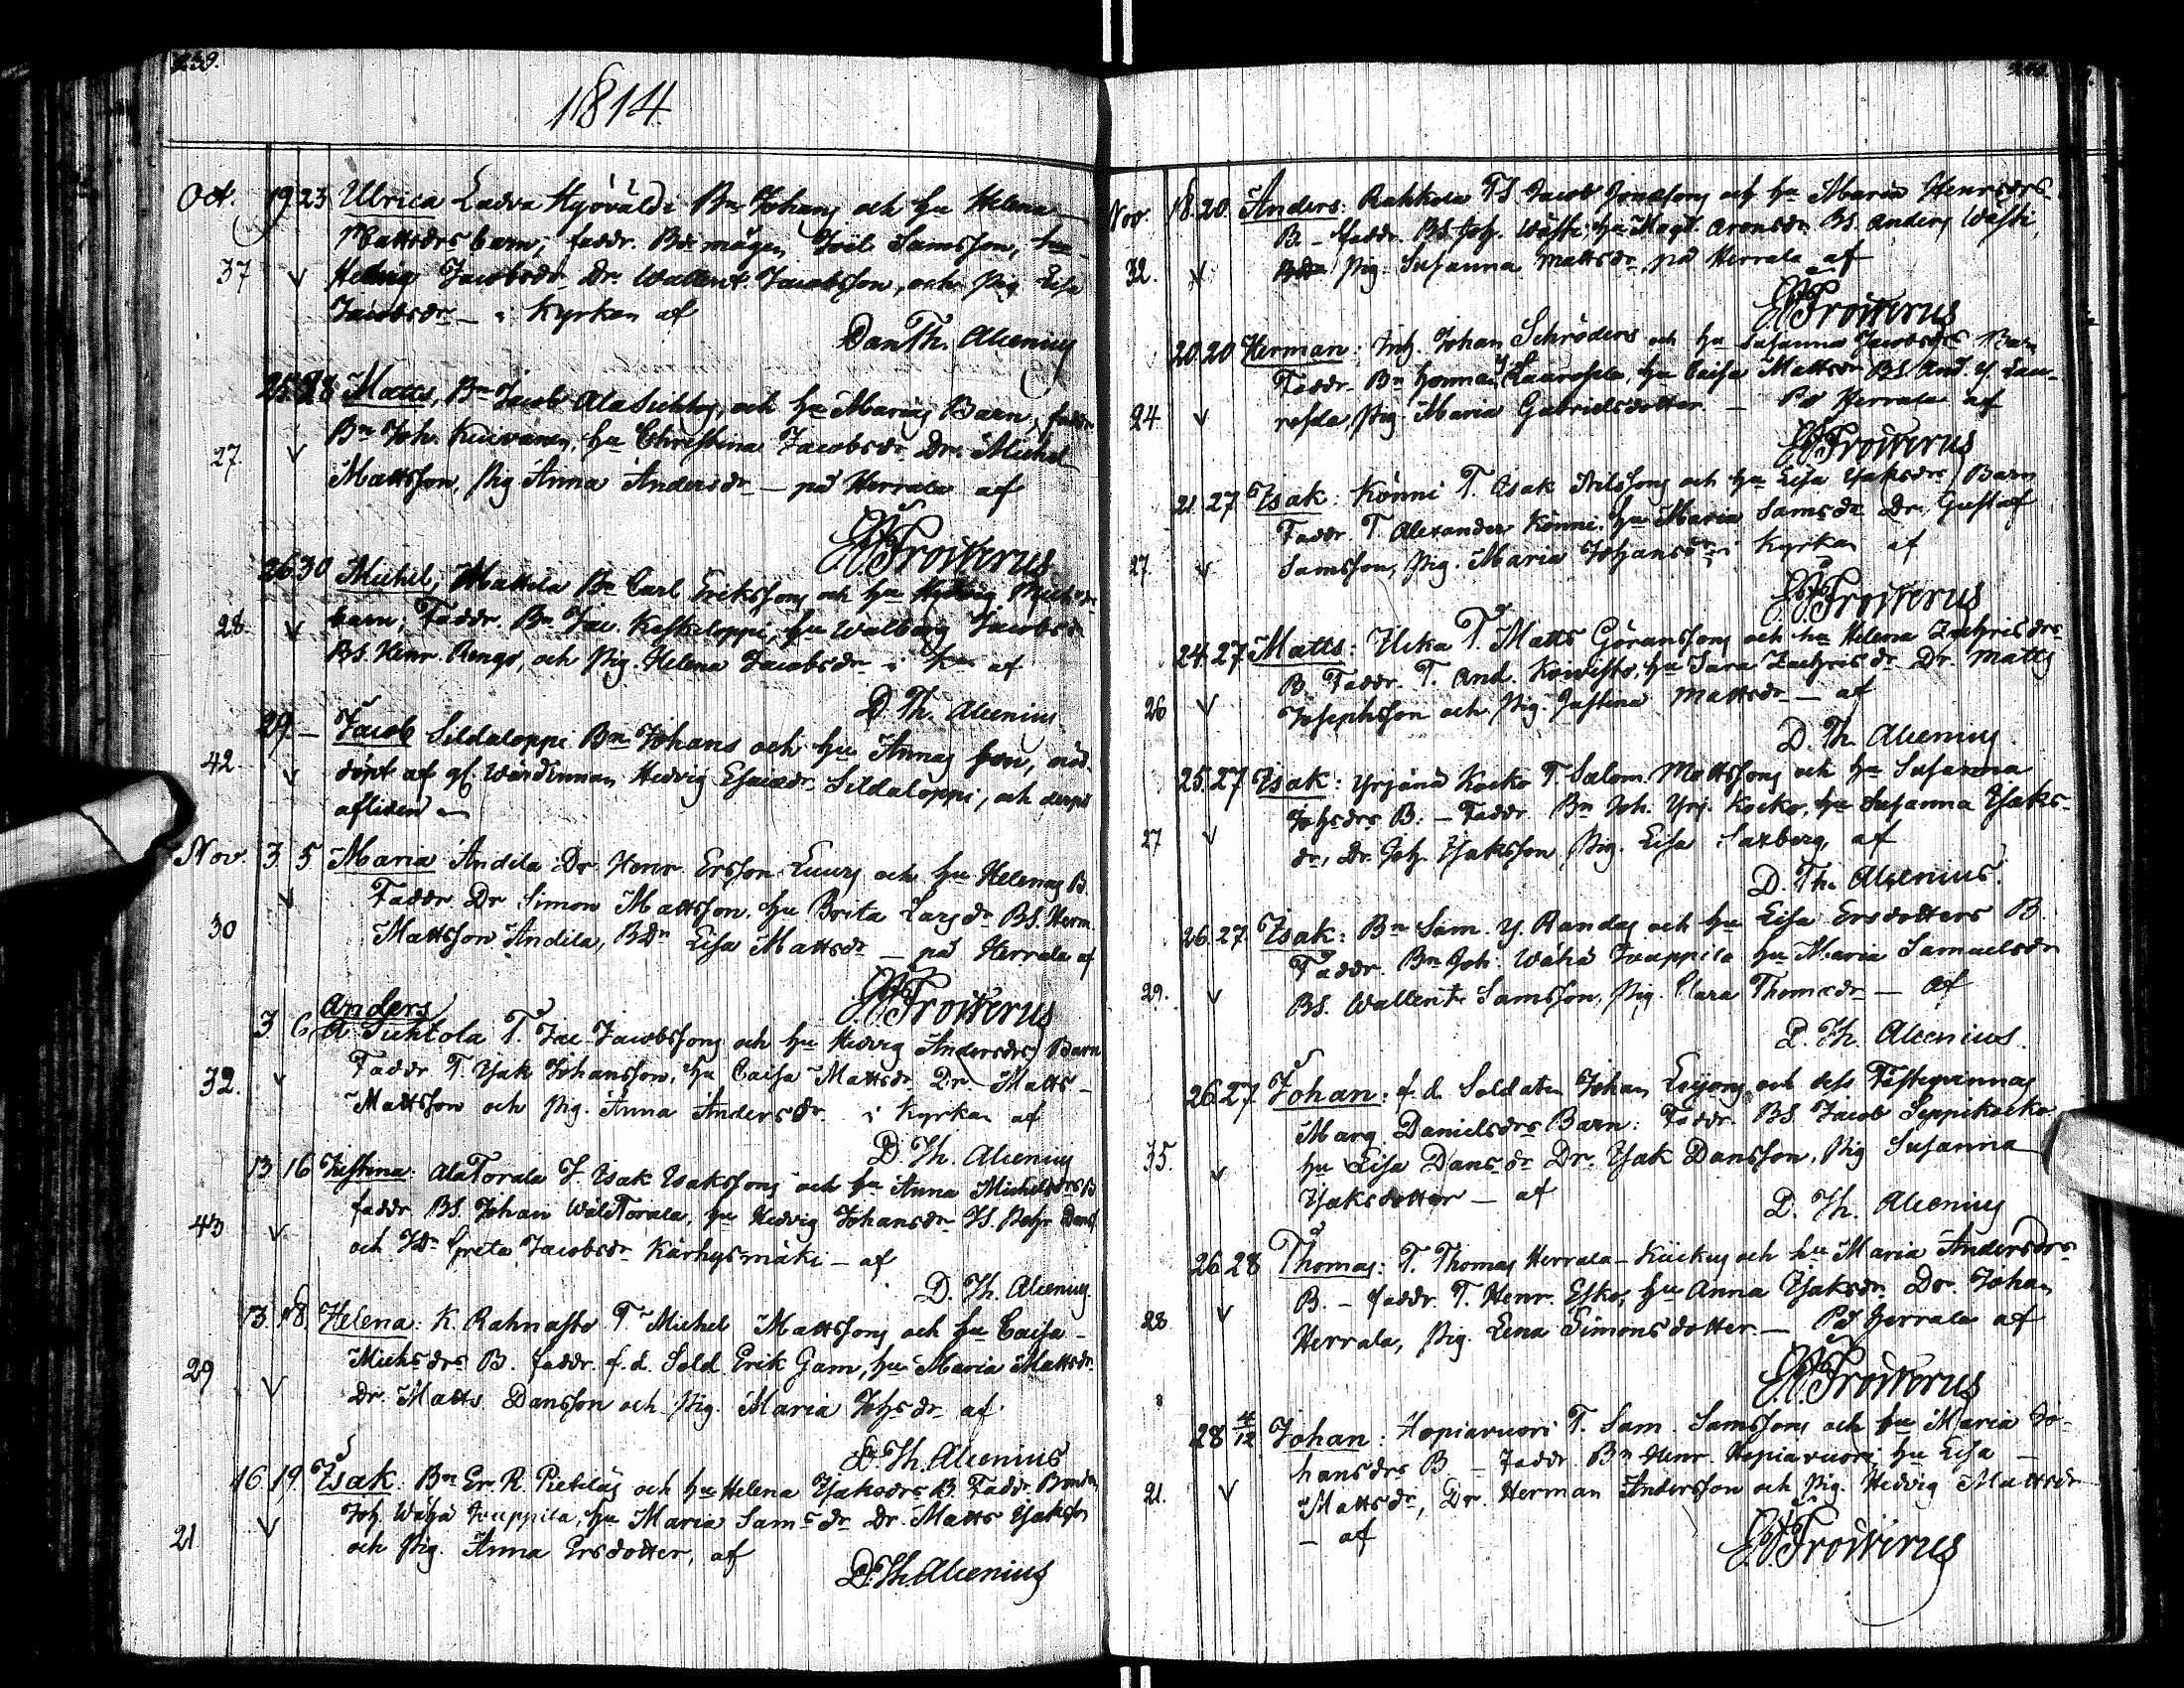 239.
1814
Oct. 19 23 Ulrica Ladva Hyövälds Bn Johans och hu Helena
Mattsdrs barn; faddr. Bde mågen Joël Samsson, hu
37 Hedvig Jacobsdr Dr. Wallent. Jacobsson, och Pig. Lisa
Jacobsdr – i Kyrkan af
Dan Th. Alcenius
25 28 Matts, Bn Jacob AlaSuhtos, och hu Marias Barn, faddr
Bn Joh. Kuivinen, hu Christina Jacobsdr Dr. Michel
27. Mattsson, Pig Anna Andersdr – på Herrala af
Froiterus
26 30 Michel, Mattila Bn Carl Erikssons och hu Hedvig Michsdr
barn; Faddr. Bn Jac. Keskiloppi, hu Walborg Jacobsd
28. BS. Henr. Rengo, och Pig. Helena Jacobsdr i af
D. Th. Alcenius
29 – Jacob Sildaloppi Bn Johans och hu Annas son, nöd
42. döpt af gl. Wärdinnan Hedvig Esaiædr. Sildaloppi, och derpå
afliden
Nov. 3 5 Maria Andila Dr Henr Ersson Luurs och hu Helenas B
Faddr Dr Simon Mattsson, hu Brita Larsdr BS. Herm.
30 Mattsson Andila, BDr Lisa Mattsdr – på Herrala af
Froiterus
Anders
3 6 A Suhtola T. Jac. Jacobssons och hu Hedvig Andersdrs Barn
Faddr. T. Isak Johansson, hu Caisa Mattsdr Dr. Matts
32. Mattsson och Pig. Anna Andersdr i Kyrkan af
D. Th. Alcenius
13 16 Justina: AlaTorala T. Isak Isakssons och hu Anna Michelsdrs B
faddr BS. Johan WäliTorala, hu Hedvig Johansdr
43 och Greta Jacobsdr Kärhysmäki – af
D. Th. Alcenius
13. 18 Helena: K. Rahnasto T. Michel Mattssons och hu Caisa
Michsdrs B. faddr. f.d. Sold. Erik Gam, hu Maria Mattsdr.
29 Dr. Matts Dansson och Pig. Maria Johsdr af
D. Th. Alcenius
16 19. Isak. Bn Er. R. Pietiläs och hu Helena Isaksdrs B. Faddr.
Joh Wähä Juppila, hu Maria Samsdr Dr. Matts Isaksson
21 och Pig. Anna Ersdotter, af
D. Th. Alcenius
Nov. 18. 20. Anders: Rahkola TS Jacob Jonassons och hu Maria Henrsdrs
B. – Faddr. BS. Joh. Wästi hu Magt. Aronsdr BS. Anders Wästi,
32. Pig. Susanna Mattsdr, på Herrala af
Froiterus
20. 20 Herman: Inh. Johan Schröders och hu Susanna Jacobsdrs Barn
Faddr. Bn Herman Y. Laurosela, hu Caisa Mattsdr BS. And. Y. Lau-
24 rosela, Pig. Maria Gabrielsdotter – På Herrala af
Froiterus
21. 27. Isak: Könni T. Isak Nilssons och hu Lisa Isaksdrs Barn
Faddr T. Alexander Könni, hu Maria Samsdr Dr. Gustaf
27. Samsson, Pig. Maria Johansdr, i Kyrkan af
Froiterus
24. 27. Matts: Ucka T. Matts Göranssons och hu Helena Zachrisdrs
B. Faddr. T. And. Kowisto, hu Sara Zachrisdr Dr. Matts
26 Josephsson och Pig. Justina Mattsdr – af
D. Th. Alcenius.
25. 27 Isak: Yrjänä Kocko T Salom. Mattssons och hu Susanna
Johsdrs B. – Faddr. Bn Joh. Yrj. Kocko, hu Susanna Isaks-
27 dr, Dr. Joh. Isaksson Pig. Lisa Saxberg, af
D. Th. Alcenius.
26. 27. Isak: Bn Sam. Y. Randas och hu Lisa Ersdotters B
Faddr. Bn Joh. Wähä Juppila hu Maria Samuelsdr
29. BS. Wallent. Samsson, Pig. Clara Thomædr – af
D. Th. Alcenius.
26. 27. Johan: f.d. Soldaten Johan Leijons och dess Fästeqvinnas
Marg. Danielsdrs Barn: Faddr. BS. Jacob Seppikocko
35. hu Lisa Dansdr Dr. Isak Dansson, Pig Susanna
Isaksdotter – af
D. Th. Alcenius
26 28 Thomas: T. Thomas Herrala-Kückus och hu Maria Andersdrs
B. – faddr. T. Henr. Esko, hu Anna Isaksdr Dr. Johan
28 Herrala, Pig. Lena Simonsdotter. – På Herrala af
Froiterus
28 4/12 Johan: Hopiavuori T. Sam. Samssons och hu Maria Jo-
hansdrs B – Faddr. Bn Henr. Hopiavuori, hu Lisa
21. Mattsdr, Dr. Herman Andersson och Pig. Hedvig Mattsdr
– af
Froiterus